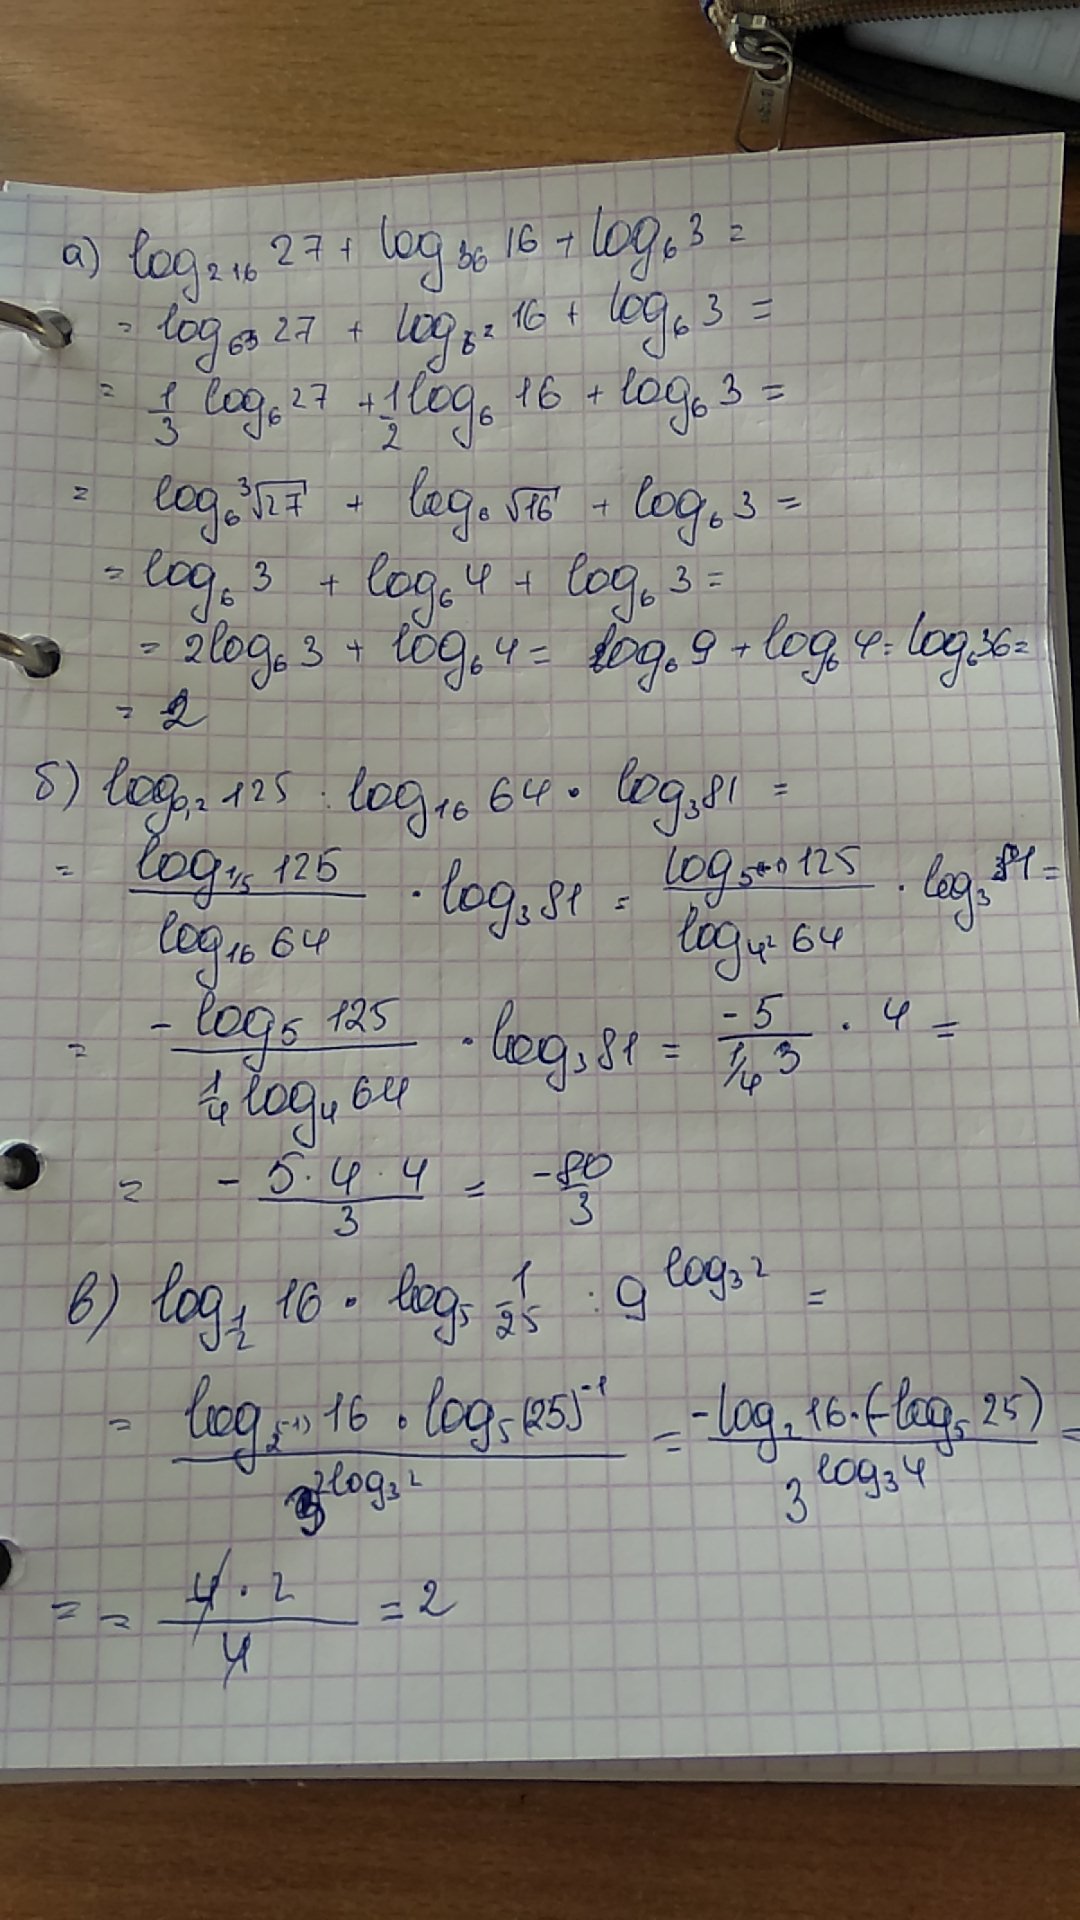 а) log₂₁₆ 27 + log₃₆ 16 + log₆ 3 =
= log₆³ 27 + log₆² 16 + log₆ 3 =
= 1/3 log₆ 27 + 1/2 log₆ 16 + log₆ 3 =
= log₆ ³√27 + log₆ √16 + log₆ 3 =
= log₆ 3 + log₆ 4 + log₆ 3 =
= 2log₆ 3 + log₆ 4 = log₆ 9 + log₆ 4 = log₆ 36 =
= 2
б) log₀,₂ 125 : log₁₆ 64 · log₃ 81 =
= log₁/₅ 125 / log₁₆ 64 · log₃ 81 = log₅₍₋₁₎ 125 / log₄² 64 · log₃ 81 =
= -log₅ 125 / 1/4 log₄ 64 · log₃ 81 = -5 / 1/4 3 · 4 =
= - 5·4·4 / 3 = -80/3
в) log₁/₂ 16 · log₅ 1/25 : 9^log₃ 2 =
= log₂(-1) 16 · log₅ (25)⁻¹ / 3^2log₃ 2 = -log₂ 16·(-log₅ 25) / 3^log₃ 4 =
= = 4·2 / 4 = 2